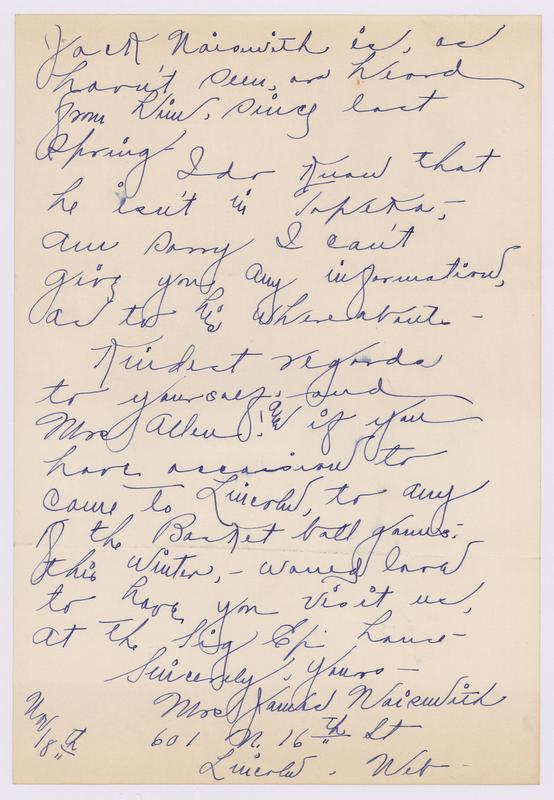 Jack Naismith is, as
haven't seen, or heard
from him, since last
spring
I do know that
he isn't in Topeka,-
am sorry I can't
give you any information,
as to his whereabouts -
Kindest regards
to yourself, and
Mrs Allen, and if you
have occaision to
come to Lincoln, to any
of the Basket ball games
this winter, - would love
to have you visit us,
at the Sig Ep house -
Sincerely, Yours -
Mrs James Naismith
601 N. 16th St
Lincoln. Neb -
Nov
18th